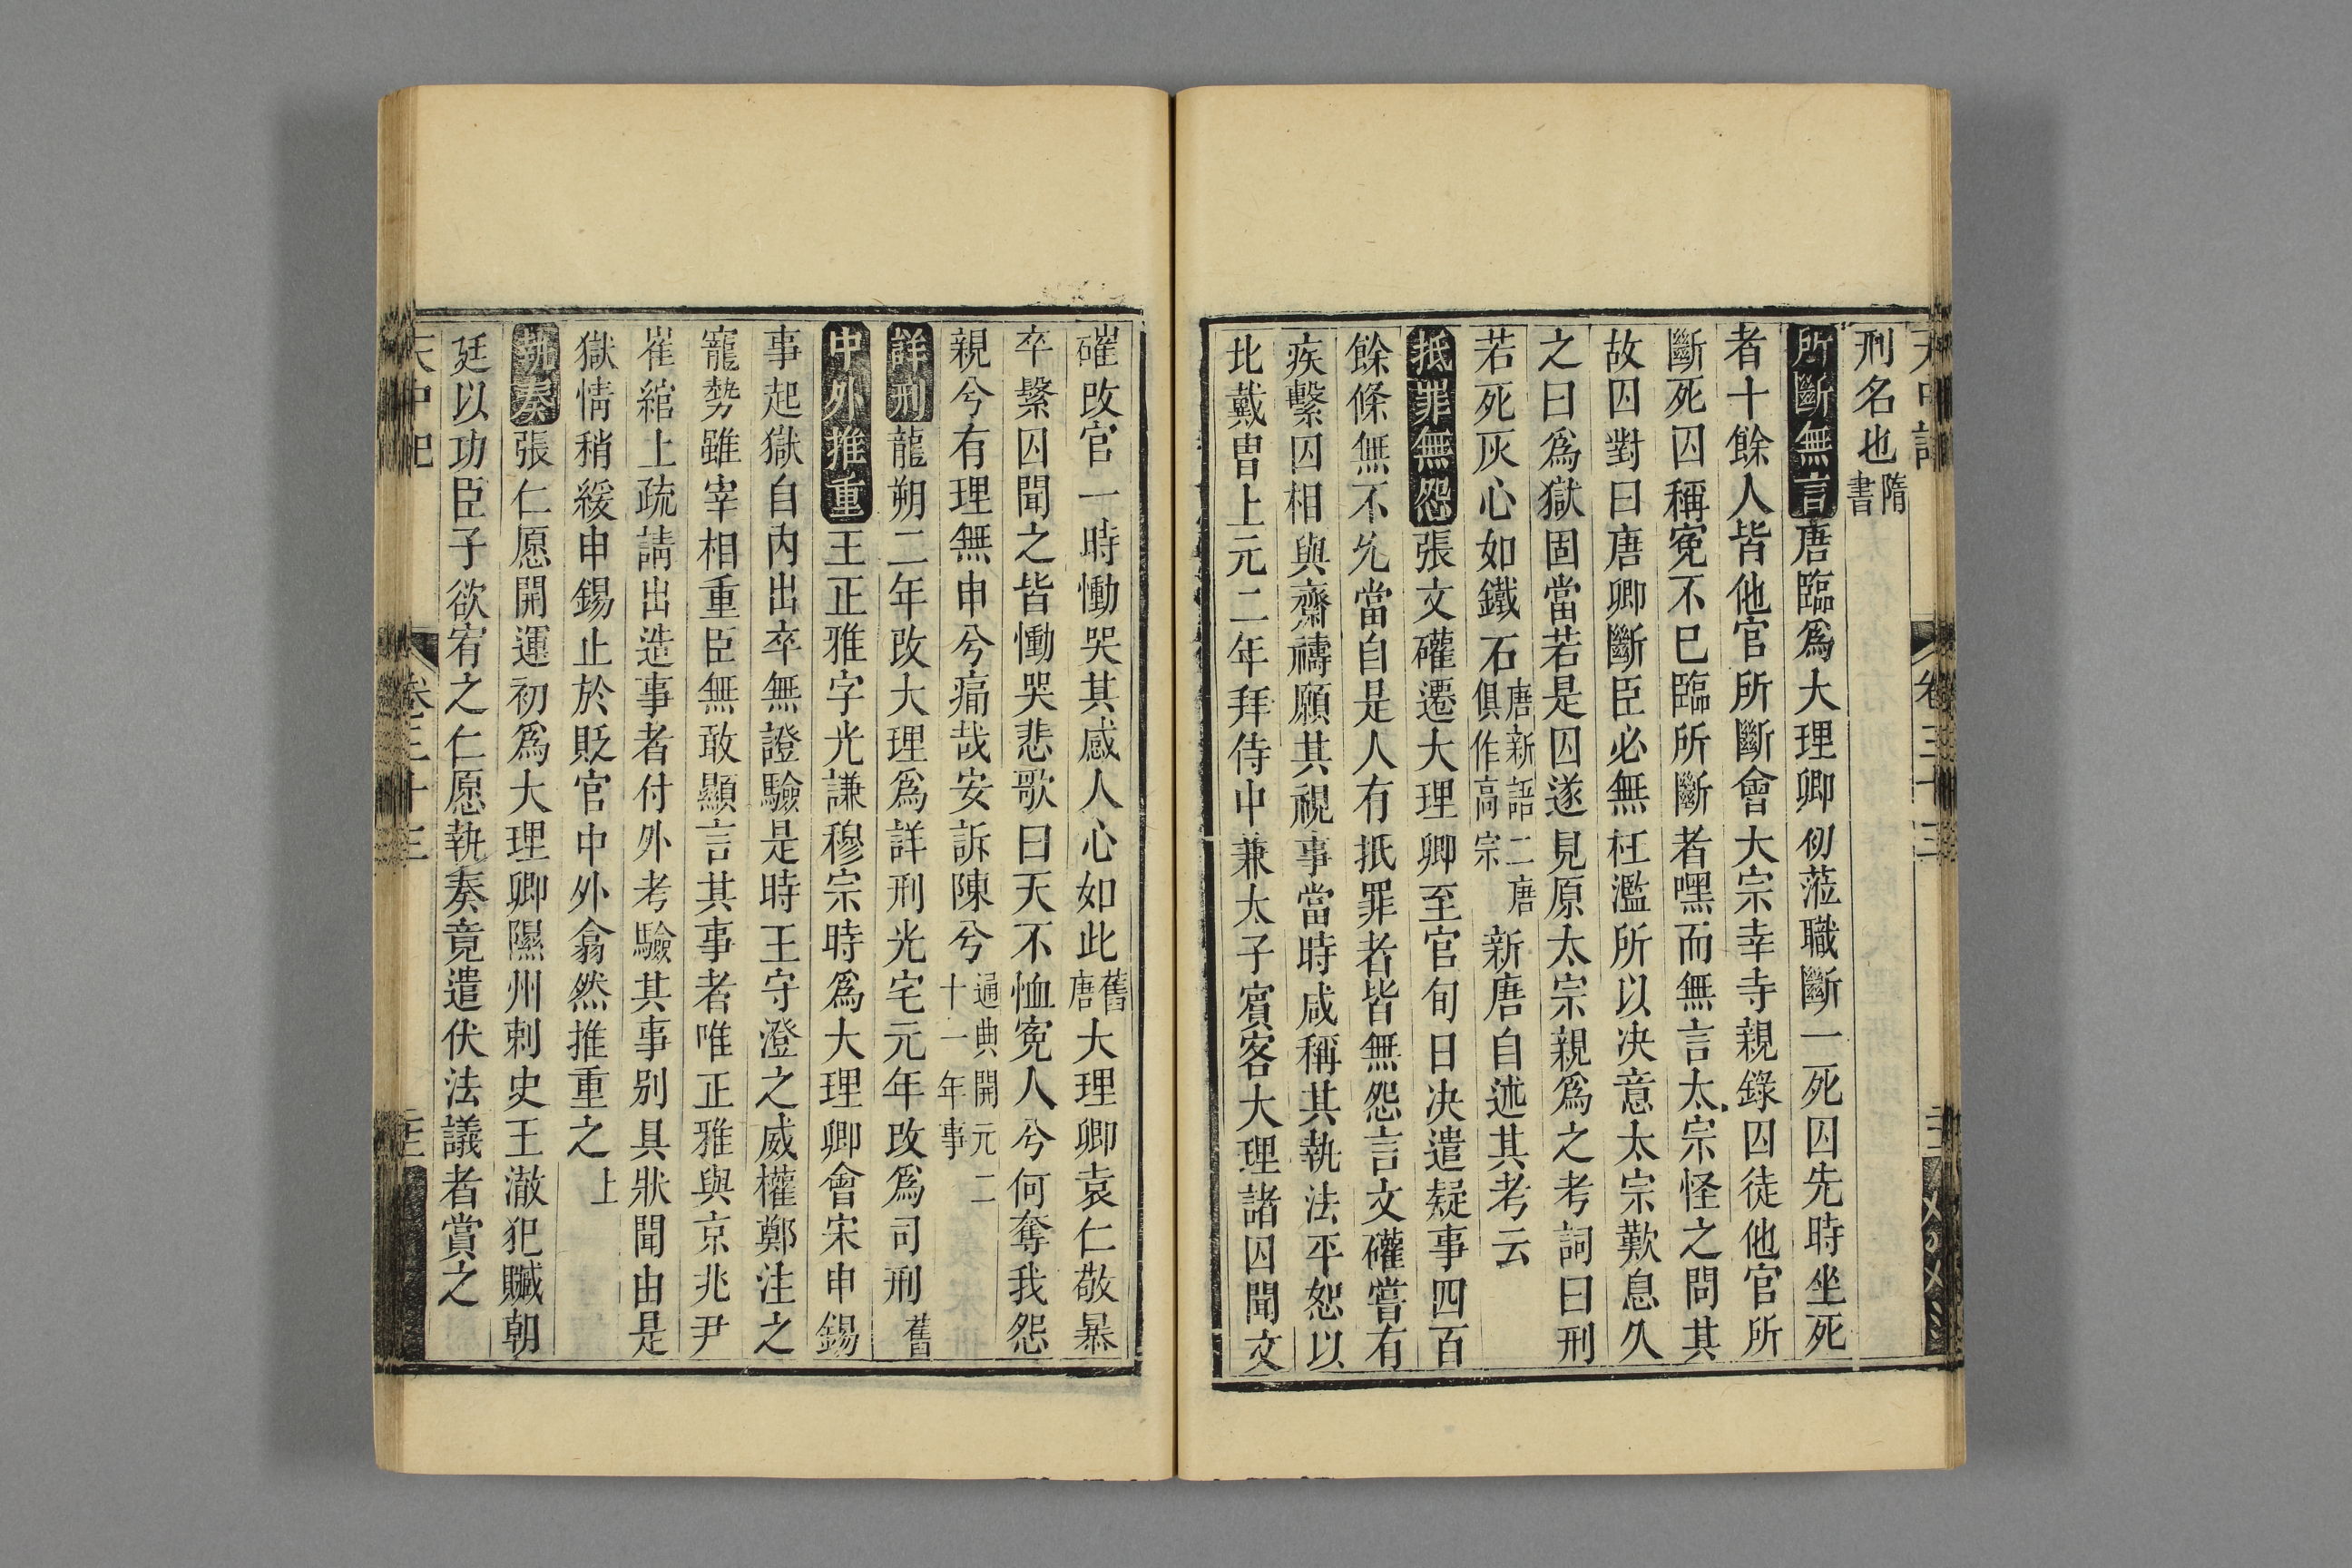 刑名也隋書
所斷無言唐臨爲大理卿初蒞職斷一死囚先時坐死
者十餘人皆他官所斷會大宗幸寺親錄囚徒他官所
斷死囚稱寃不已臨所斷者嘿而無言太宗怪之問其
故囚對曰唐卿斷臣必無枉濫所以决意太宗歎息久
之曰爲獄固當若是囚遂見原太宗親爲之考詞曰刑
若死灰心如鐵石唐新語二唐俱作高宗新唐自述其考云
抵罪無怨張文瓘遷大理卿至官旬日决遣疑事四百
餘條無不允當自是人有抵罪者皆無怨言文瓘嘗有
疾繫囚相與齋禱願其視事當時咸稱其執法平恕以
比戴胄上元二年拜侍中兼太子賓客大理諸囚聞文
瓘改官一時慟哭其感人心如此舊唐大理卿袁仁敬暴
卒繫囚聞之皆慟哭悲歌曰天不恤寃人兮何奪我怨
親兮有理無申兮痛哉安訴陳兮通典開元二十一年事
詳刑龍朔二年改大理爲詳刑光宅元年改爲司刑舊
中外推重王正雅字光謙穆宗時爲大理卿會宋申錫
事起獄自內出卒無證驗是時王守澄之威權鄭注之
寵勢雖宰相重臣無敢顯言其事者唯正雅與京兆尹
崔綰上疏請出造事者付外考驗其事別具狀聞由是
獄情稍緩申錫止於貶官中外翕然推重之上
執奏張仁愿開運初爲大理卿隰州刺史王澈犯贓朝
廷以功臣子欲宥之仁愿執奏竟遣伏法議者賞之
天中記 卷三十三